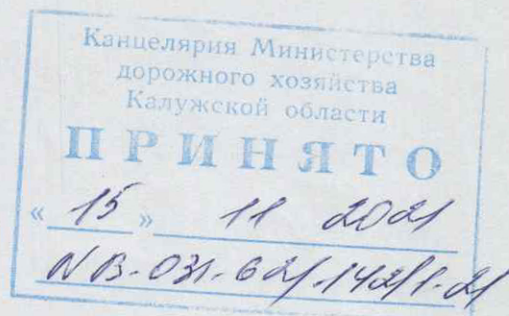 Канцелярия Министерства
дорожного хозяйства
Калужской области
ПРИНЯТО
« 15 » 11 2021
N В-031-62/-1421/1-21